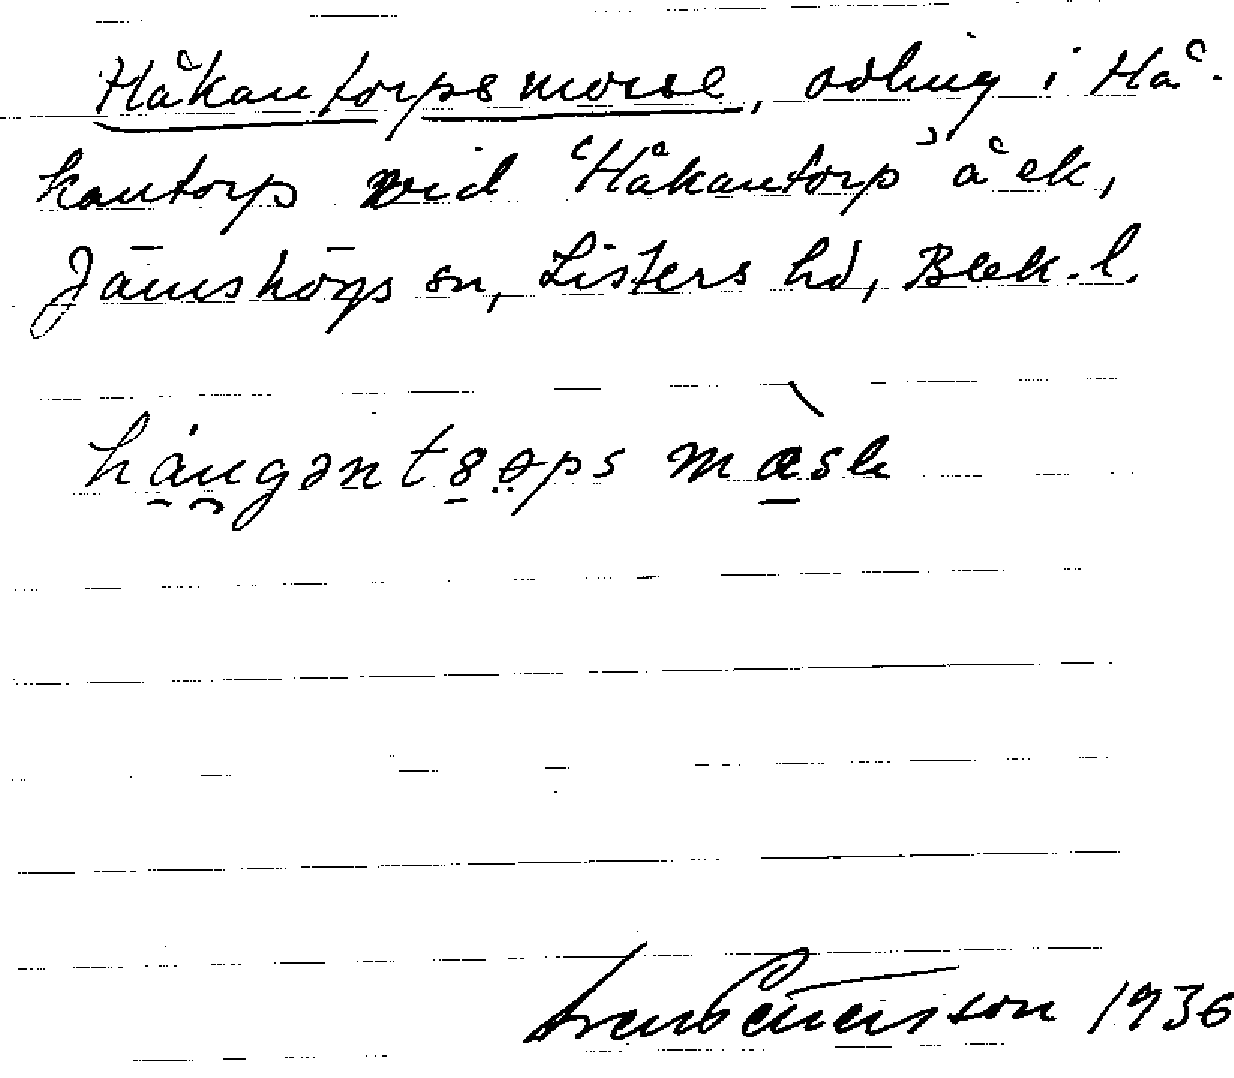 Håkantorpsmosse, odling i Hå-
kantorp vid "Håkantorp" å ek,
Jämshögs sn, Listers hd, Blek. l.
1936